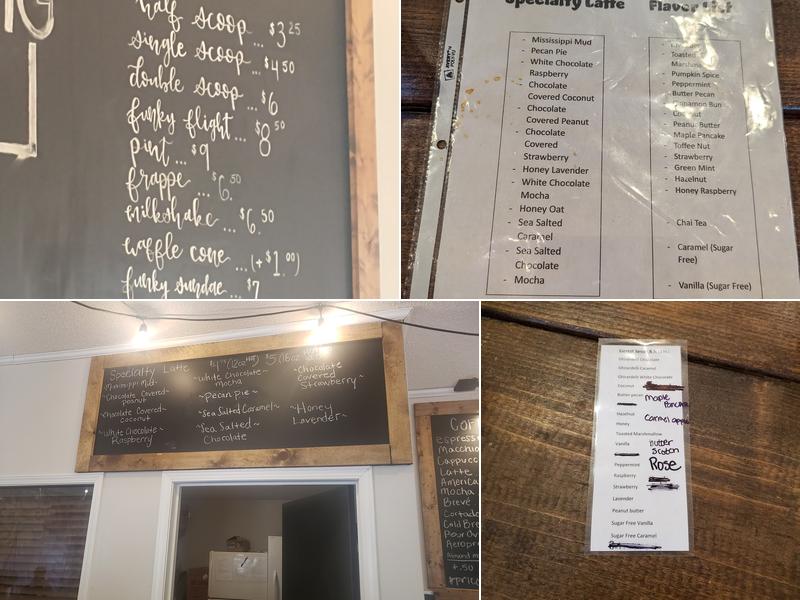 half scoop ... $3.25
single scoop ... $4.50
double scoop ... $6
funky flight ... $8.50
pint ... $9
frappe ... $6.50
milkshake ... $6.50
waffle cone ... (+ $1.00)
funky sundae ... $7
Specialty Latte
- Mississippi Mud
- Pecan Pie
- White Chocolate
Raspberry
- Chocolate
Covered Coconut
- Chocolate
Covered Peanut
- Chocolate
Covered
Strawberry
- Honey Lavender
- White Chocolate
Mocha
- Honey Oat
- Sea Salted
Caramel
- Sea Salted
Chocolate
- Mocha
Flavor List
- Toasted
- Pumpkin Spice
- Peppermint
- Butter Pecan
- Cinnamon Bun
- Coconut
- Peanut Butter
- Maple Pancake
- Toffee Nut
- Strawberry
- Green Mint
- Hazelnut
- Honey Raspberry
- Chai Tea
- Caramel (Sugar
Free)
- Vanilla (Sugar Free)
Specialty Latte
Mississippi Mud~
~Chocolate Covered~
peanut
~Chocolate Covered~
coconut
~White Chocolate~
Raspberry
~White Chocolate~
mocha
~Pecan pie~
~Sea Salted Caramel~
~Sea Salted~
Chocolate
~Chocolate
Covered
Strawberry~
~Honey
Lavender~
Espresso
Macchia
Cappucc
Latte
America
Mocha
Breve
Cortado
Cold Bre
Pour Ov
Aeropre
Almond m
+.50
Ghirardelli Chocolate
Ghirardelli Caramel
Ghirardelli White Chocolate
Coconut
Butter pecan
Maple
Pancake
Hazelnut
Caramel apple
Honey
Toasted Marshmallow
Vanilla
Butter
Scotch
Peppermint
Rose
Raspberry
Strawberry
Lavender
Peanut butter
Sugar Free Vanilla
Sugar Free Caramel